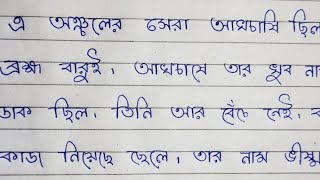 এ অঞ্চলের সেরা আখচাষি ছিল
ব্রহ্ম বারুই। আখচাষে তার খুব না
ডাক ছিল। তিনি আর বেঁচে নেই।
কাড়া নিয়েছে ছেলে। তার নাম ভীষ্ম